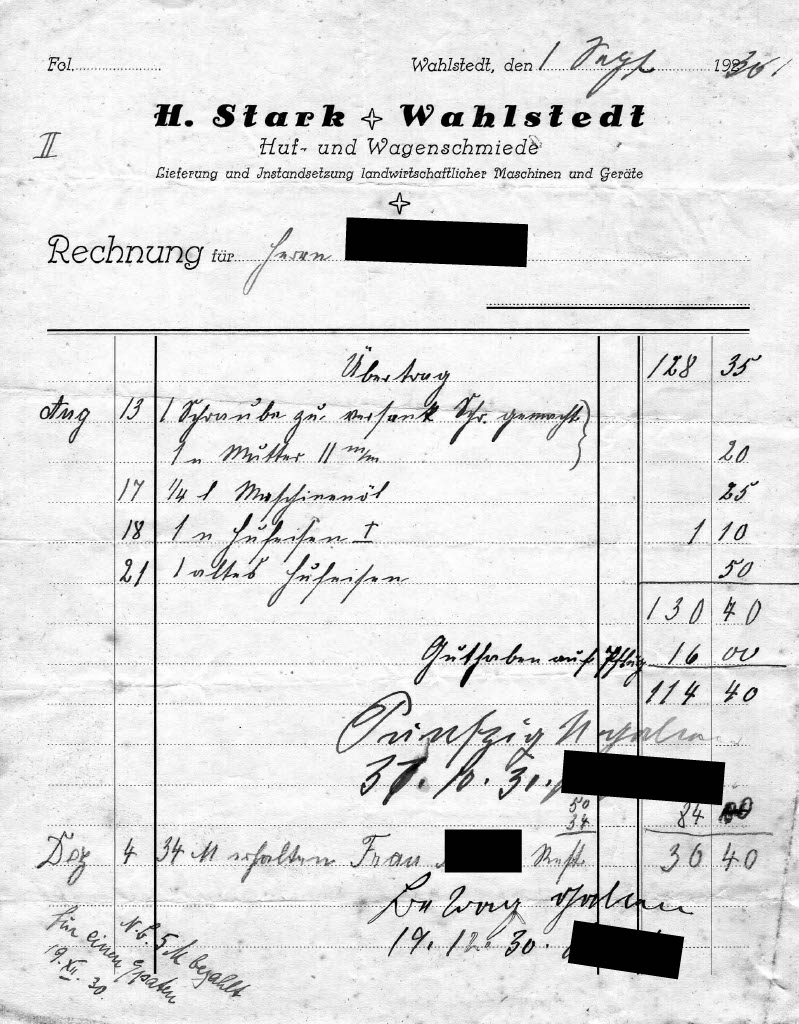 Fol.
Wahlstedt, den 1 Sept. 1930
II
H. Stark Wahlstedt
Huf- und Wagenschmiede
Lieferung und Instandsetzung landwirtschaftlicher Maschinen und Geräte
Rechnung für Herrn
Übertrag 128 35
Aug 13 1 Schraube zu versenk Schr. gemacht
1 n Mutter 11 m/m 20
17 1/4 l Maschinenöl 25
18 1 n Hufeisen I 1 10
21 1 altes Hufeisen 50
130 40
Guthaben auf Pflug 16 00
114 40
Fünfzig M erhalten
31. 10. 30.
50
34 84 00
Dez 4 34 M erhalten Frau Rest 30 40
Betrag erhalten
19. 12. 30.
N.b. 5 M bezahlt
Für einen Spaten
19. XII. 30.